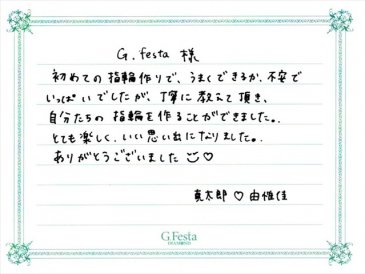 G.festa 様
初めての指輪作りで、うまくできるか、不安で
いっぱいでしたが、丁寧に教えて頂き、
自分たちの指輪を作ることができました。
とても楽しく、いい思い出になりました。
ありがとうございました
真太郎 ♡ 由惟佳
G.Festa
DIAMOND